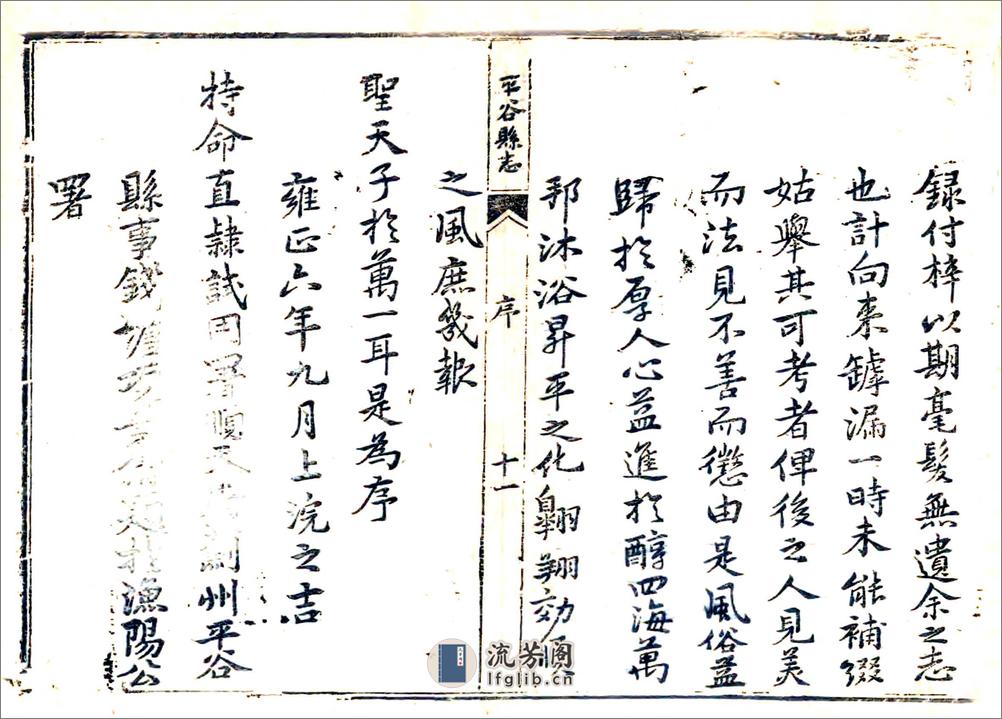 錄付梓以期毫髮無遺余之志
也計向來罅漏一時未能補綴
姑舉其可考者俾後之人見美
而法見不善而懲由是風俗益
歸於厚人心益進於醇四海萬
邦沐浴昇平之化翱翔効順
平谷縣志
序
十一
之風庶幾報
聖天子於萬一耳是為序
雍正六年九月上浣之吉
特命直隸試用署順天薊州平谷
縣事錢塘題於漁陽公
署
流芳阁
lfglib.cn